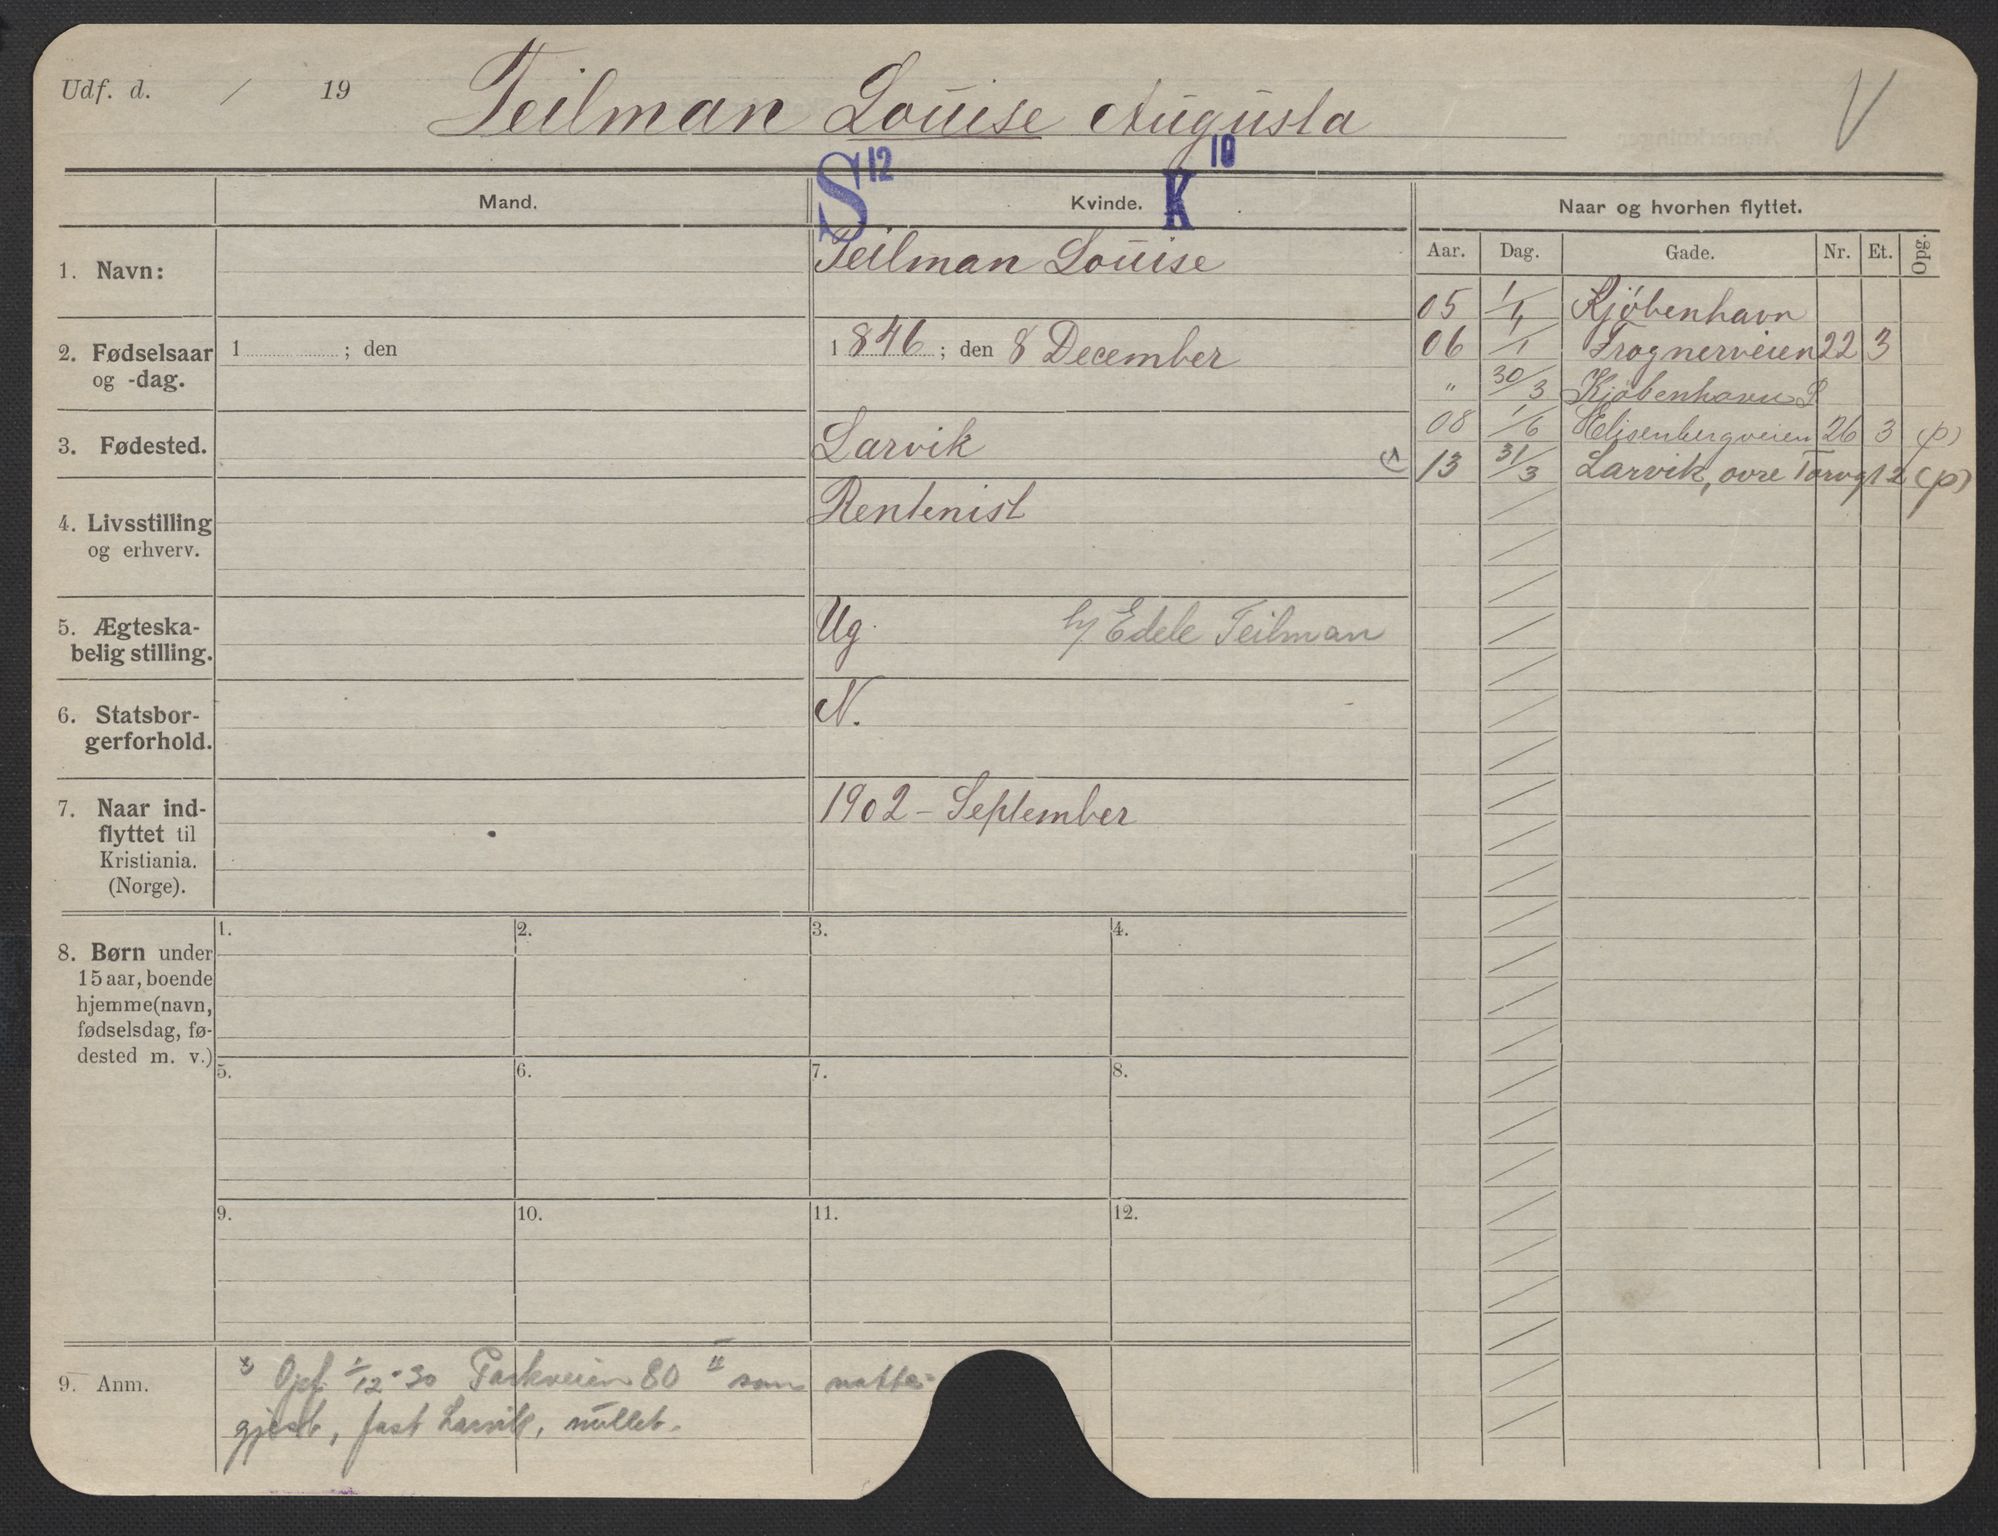 Udf. d. / 19 Teilman Louise Augusta V
S 12 K 10
Mand. Kvinde. Naar og hvorhen flyttet.
Aar. Dag. Gade. Nr. Et. Opg.
1. Navn: Teilman Louise
2. Fødselsaar 1 ; den 1846 ; den 8 December
og -dag.
3. Fødested. Larvik
4. Livsstilling Rentenist
og erhverv.
5. Ægteska- Ug. h/ Edele Teilman
belig stilling.
6. Statsbor- N.
gerforhold.
7. Naar ind- 1902 - September
flyttet til
Kristiania.
(Norge).
05 1/4 Kjöbenhavn
06 1/1 Frognerveien 22 3
" 30/3 Kjøbenhavn
08 1/6 Elisenbergveien 26 3 (p)
13 31/3 Larvik, ovre Torvgt 2 (p)
8. Børn under
15 aar, boende
hjemme (navn,
fødselsdag, fø-
dested m. v.)
1. 2. 3. 4.
5. 6. 7. 8.
9. 10. 11. 12.
9. Anm. Opf. 1/12-30 Parkveien 80 II som natte-
gjest, fast Larvik, nullet.